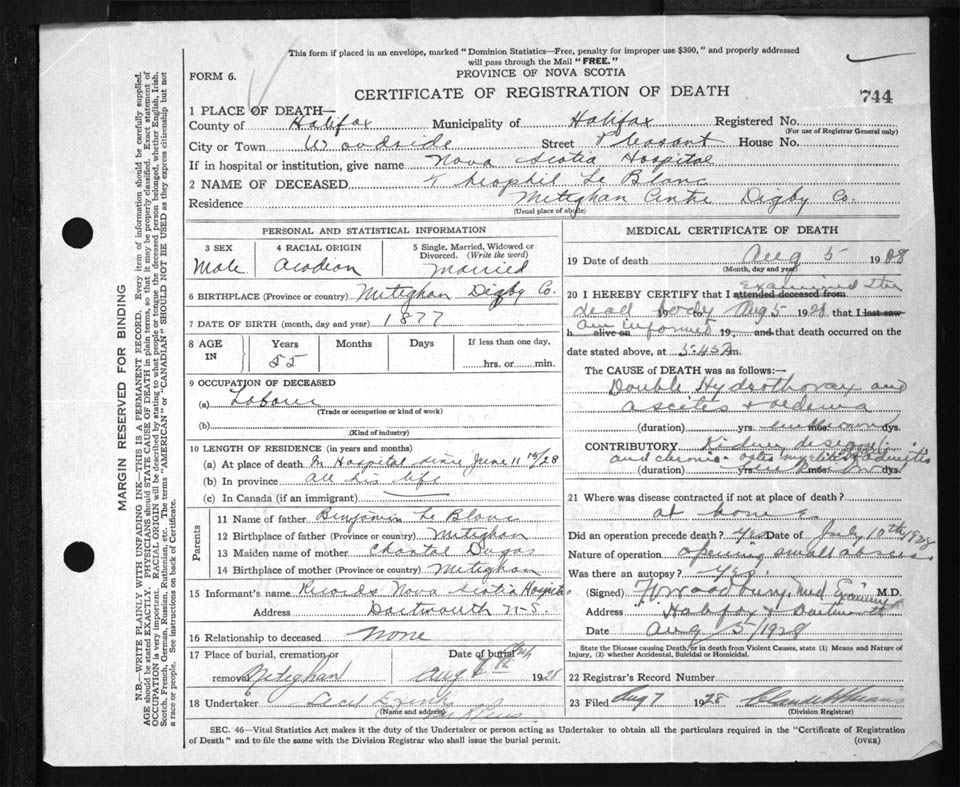 This form if placed in an envelope, marked "Dominion Statistics—Free, penalty for improper use $300," and properly addressed
will pass through the Mail "FREE."
FORM 6.
PROVINCE OF NOVA SCOTIA
CERTIFICATE OF REGISTRATION OF DEATH
744
1 PLACE OF DEATH—
County of Halifax Municipality of Halifax Registered No.
(For use of Registrar General only)
City or Town Woodside Street Pleasant House No.
If in hospital or institution, give name Nova Scotia Hospital
2 NAME OF DECEASED Theophil Le Blanc
Residence Meteghan Centre Digby Co.
(Usual place of abode)
PERSONAL AND STATISTICAL INFORMATION
3 SEX 4 RACIAL ORIGIN 5 Single, Married, Widowed or
Divorced. (Write the word)
Male Acadian Married
6 BIRTHPLACE (Province or country) Meteghan Digby Co.
7 DATE OF BIRTH (month, day and year) 1877
8 AGE IN Years Months Days If less than one day,
55 hrs. or min.
9 OCCUPATION OF DECEASED
(a) Laborer
(Trade or occupation or kind of work)
(b)
(Kind of industry)
10 LENGTH OF RESIDENCE (in years and months)
(a) At place of death In Hospital since June 11th/28
(b) In province all his life
(c) In Canada (if an immigrant)
Parents
11 Name of father Benjamin Le Blanc
12 Birthplace of father (Province or country) Meteghan
13 Maiden name of mother Chantal Dugas
14 Birthplace of mother (Province or country) Meteghan
15 Informant's name Records Nova Scotia Hospital
Address Dartmouth N.S.
16 Relationship to deceased None
17 Place of burial, cremation or Date of burial
removal Meteghan Aug 1928
18 Undertaker Cecil
(Name and address)
MEDICAL CERTIFICATE OF DEATH
19 Date of death Aug 5 1928
(Month, day and year)
20 I HEREBY CERTIFY that I attended deceased from examined the
dead body Aug 5 1928 that I last saw
h alive on am informed 19, and that death occurred on the
date stated above, at 5.45 m.
The CAUSE of DEATH was as follows:—
Double Hydrothorax and
ascites & oedema
(duration) yrs. mos. dys. unknown
CONTRIBUTORY Kidney
and chronic osteo myelitis
(duration) yrs. mos. dys.
21 Where was disease contracted if not at place of death?
at home
Did an operation precede death? Yes Date of July 10th/1928
Nature of operation opening small abscess
Was there an autopsy? Yes.
(Signed) Woodbury, Med Examiner M.D.
Address Halifax & Dartmouth
Date Aug 5/1928
State the Disease causing Death, or in death from Violent Causes, state (1) Means and Nature of
Injury, (2) whether Accidental, Suicidal or Homicidal.
22 Registrar's Record Number
23 Filed Aug 7 1928
(Division Registrar)
SEC. 46—Vital Statistics Act makes it the duty of the Undertaker or person acting as Undertaker to obtain all the particulars required in the "Certificate of Registration
of Death" and to file the same with the Division Registrar who shall issue the burial permit.
(OVER)
MARGIN RESERVED FOR BINDING
N.B.—WRITE PLAINLY WITH UNFADING INK—THIS IS A PERMANENT RECORD. Every item of information should be carefully supplied.
AGE should be stated EXACTLY. PHYSICIANS should STATE CAUSE OF DEATH in plain terms, so that it may be properly classified. Exact statement of
OCCUPATION is very important. RACIAL ORIGIN will be described by stating to what people or tongue the deceased person belonged, whether English, Irish,
Scotch, French, German, Russian, Ruthenian, etc. The terms "AMERICAN" or "CANADIAN" SHOULD NOT BE USED as they express citizenship but not
a race or people. See instructions on back of Certificate.